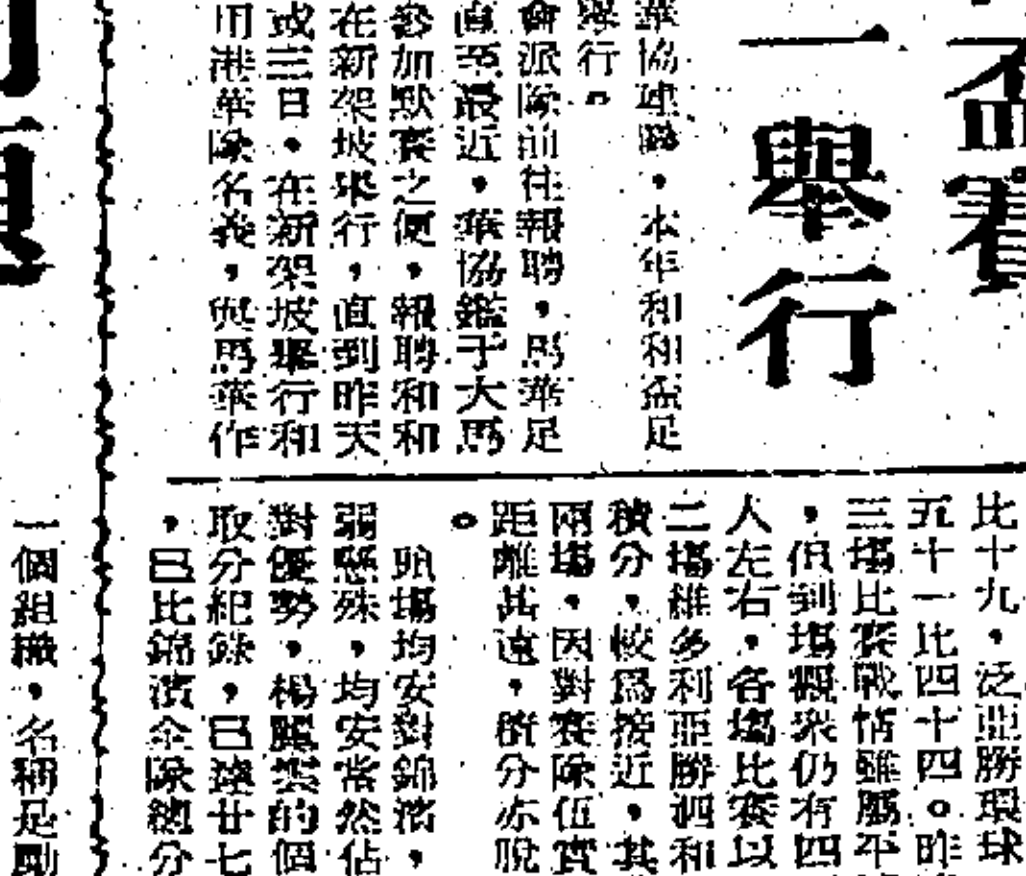 盃賽
一舉行
華協建聯，本年和和盃足
舉行。
會派隊前往報聘，馬華足
直至最近，華協鑑于大馬
參加默賽之便，報聘和和
在新架坡舉行，直到昨天
或三日，在新架坡舉行和
用港華隊名義，與馬華作
比十九，泛亞勝環球
五十一比四十四。昨
三場比賽戰情雖屬平
，但到塲觀衆仍有四
人左右，各塲比賽以
二塲維多利亞勝泗和
積分，較爲接近，其
兩塲，因對賽隊伍實
距離甚遠，所分亦脫
。
頭塲均安對錦濱，
弱懸殊，均安當然佔
對優勢，楊麗雲的個
取分紀錄，已達廿七
，已比錦濱全隊總分
一個組織，名稱是勵